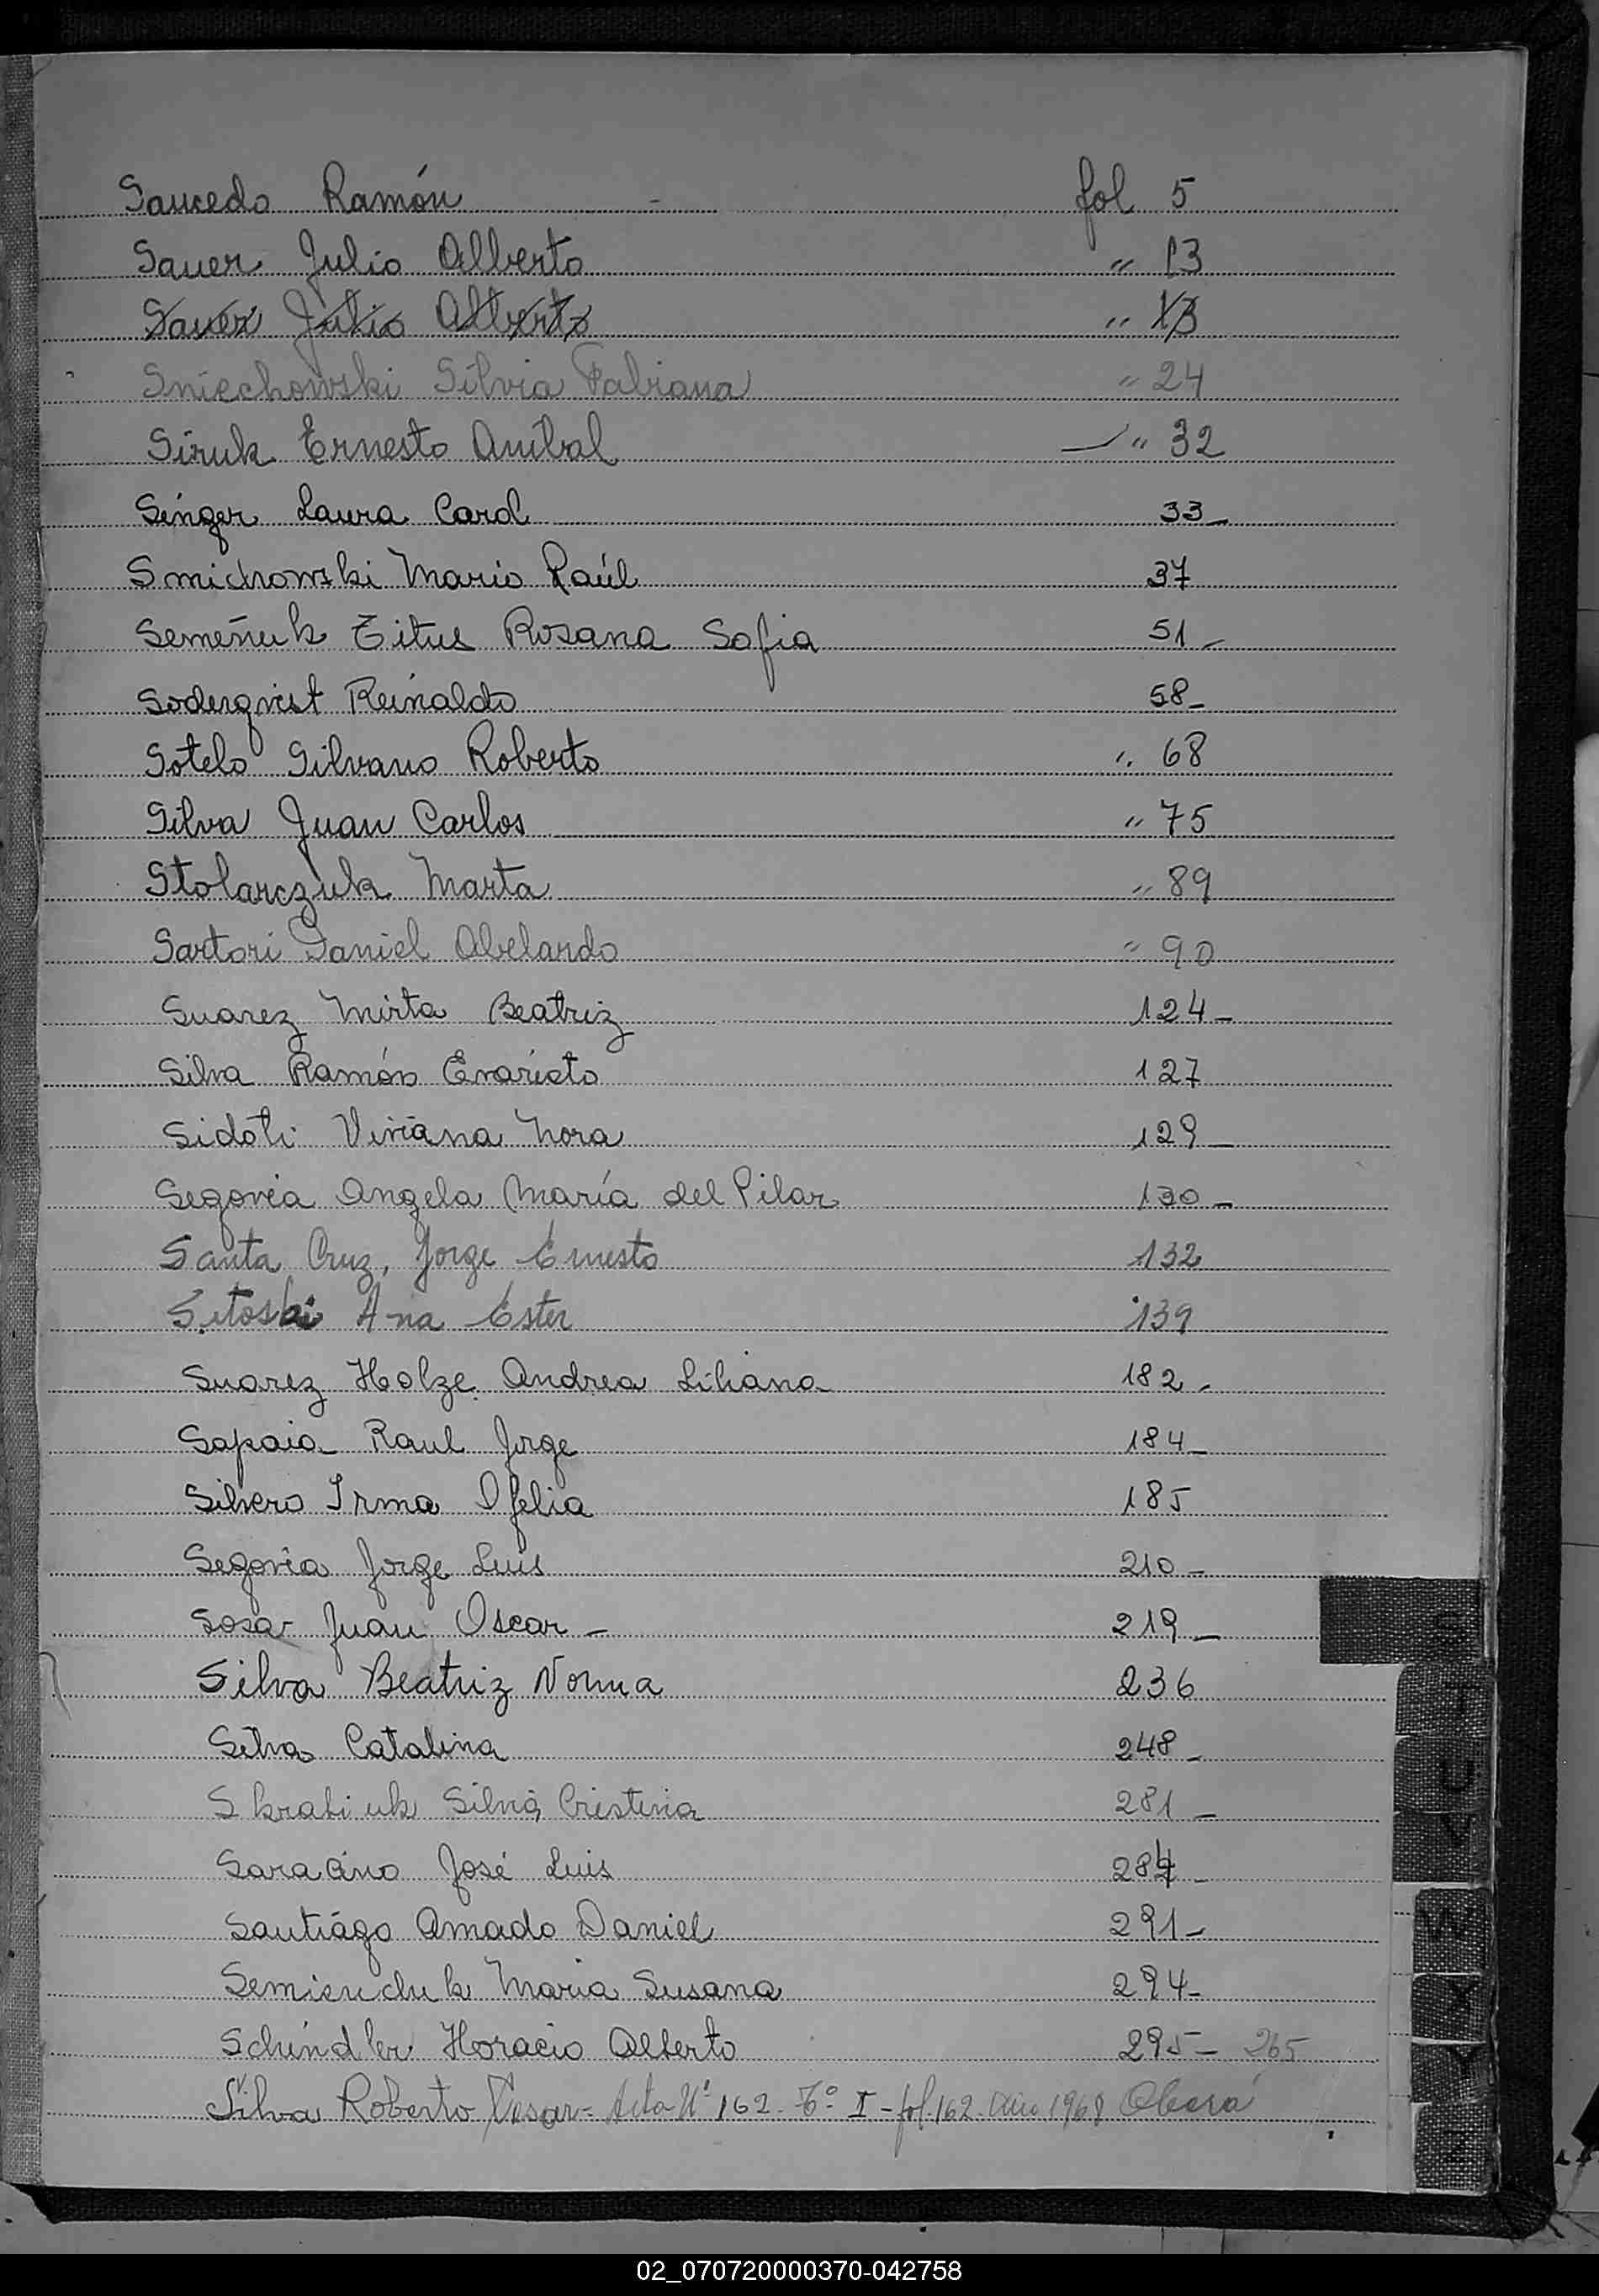 Saucedo Ramón - fol 5
Sauer Julio Alberto " 13
Sauer Julio Alberto " 13
Sniechowski Silvia Fabiana " 24
Siruk Ernesto Anibal " 32
Singer Laura Carol 33-
Smichowski Mario Raúl 37
Semeñuk Titus Rosana Sofia 51-
Soderqvist Reinaldo 58-
Sotelo Silvano Roberto " 68
Silva Juan Carlos " 75
Stolarczuk Marta " 89
Sartori Daniel Abelardo " 90
Suarez Mirta Beatriz 124-
Silva Ramón Evaristo 127
Sidoti Viviana Nora 129-
Segovia Angela María del Pilar 130-
Santa Cruz, Jorge Ernesto 132
Sitoski Ana Ester 139
Suarez Holze Andrea Liliana 182-
Sapaia Raul Jorge 184-
Silvero Irma Ofelia 185
Segovia Jorge Luis 210-
Sosa Juan Oscar - 219-
Silva Beatriz Norma 236
Silva Catalina 248-
Skrabiuk Silvia Cristina 281-
Saracino José Luis 284-
Santiago Amado Daniel 291-
Semienchuk Maria Susana 294-
Schindler Horacio Alberto 295- 265
Silva Roberto Cesar = Acta Nº 162 - Tº I - fol 162. Año 1968 Oberá
S
T
U
V
W
X
Y
Z
02_070720000370-042758